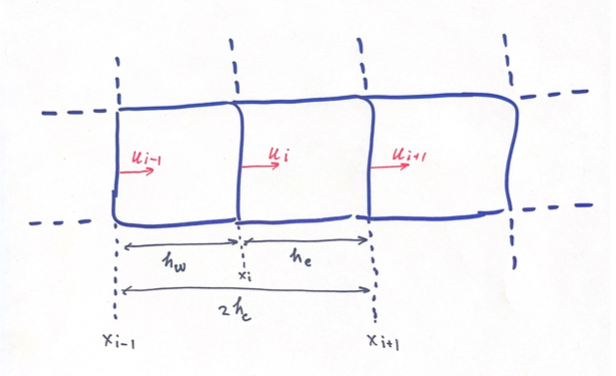 u i-1 u i u i+1
h w h e
x i
2 h c
x i-1 x i+1